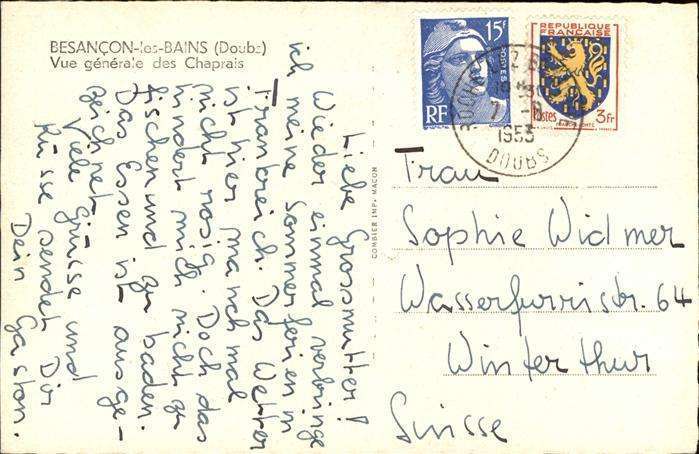 BESANÇON-les-BAINS (Doubs)
Vue générale des Chaprais
15F
POSTES
RF
REPUBLIQUE
FRANCAISE
Postes 3Fr
1953
DOUBS
COMBIER IMP. MACON
Liebe Grossmutter!
Wieder einmal verbringe
ich meine Sommerferien in
Frankreich. Das Wetter
ist hier manchmal
nicht rosig. Doch das
hindert mich nicht zu
fischen und zu baden.
Das Essen ist ausge-
zeichnet.
Viele Grüsse und
Küsse sendet Dir
Dein Gaston.
Frau
Sophie Widmer
Wasserfurristr. 64
Winterthur
Suisse